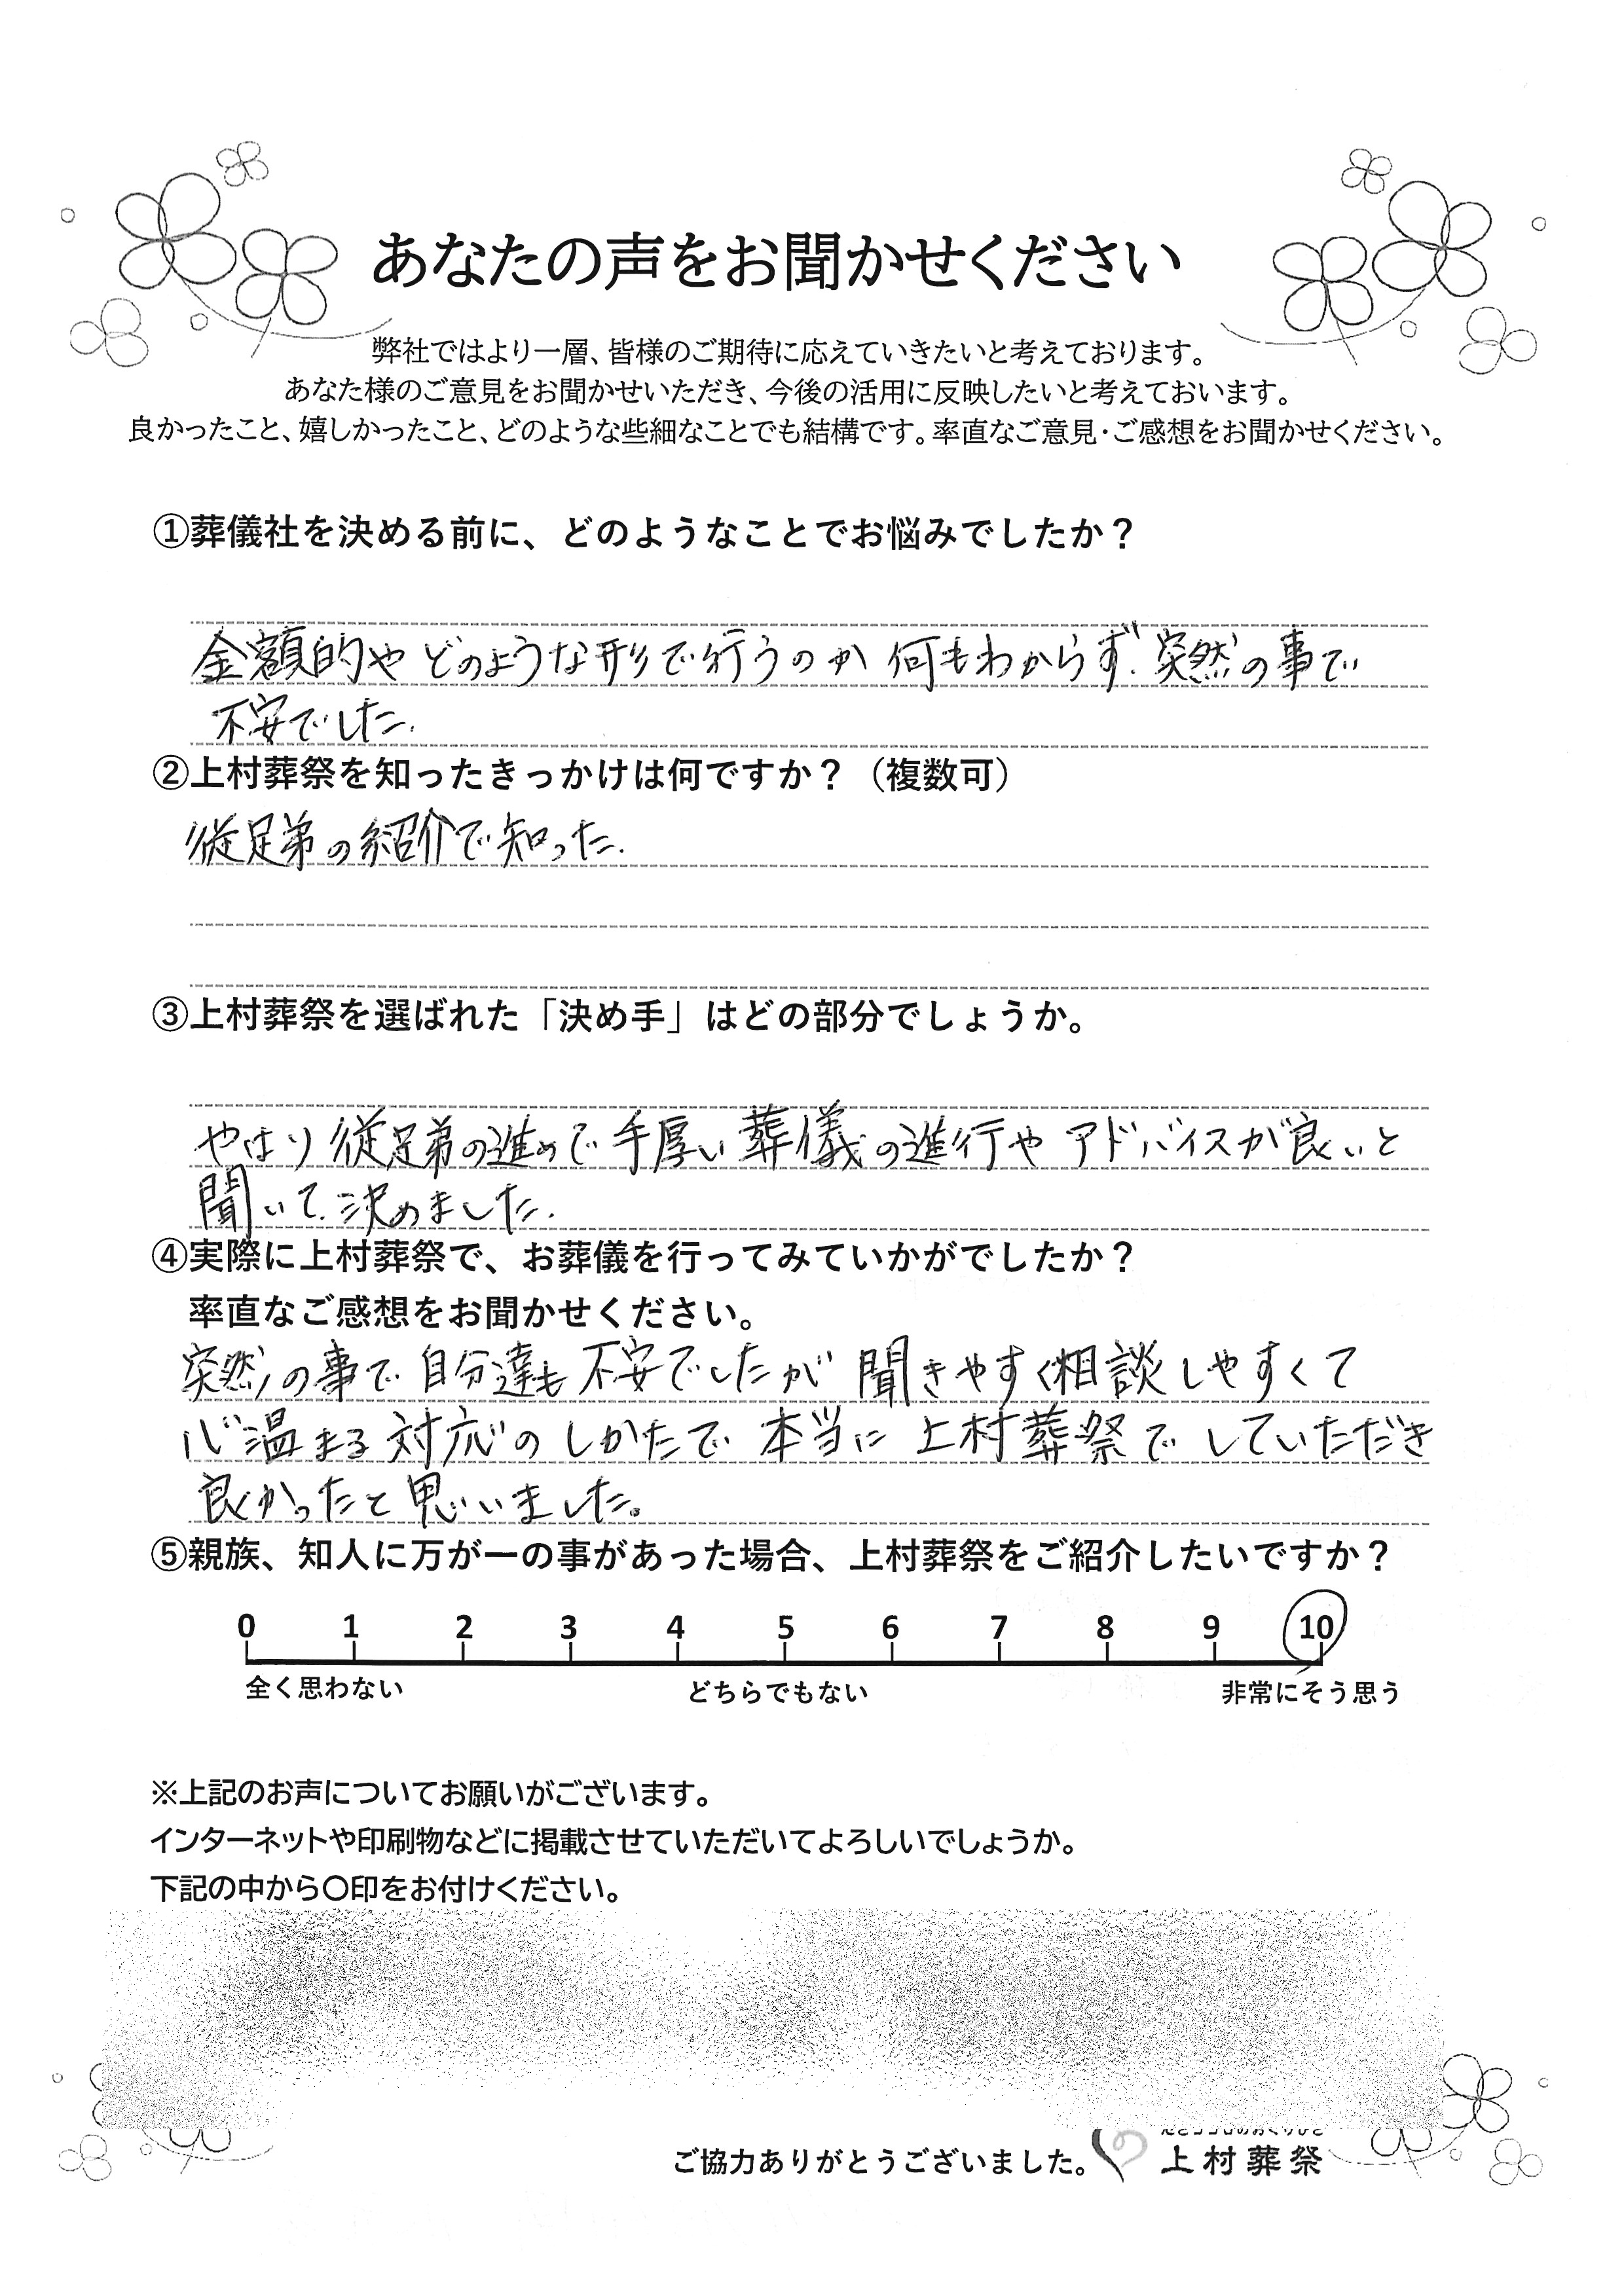 あなたの声をお聞かせください
弊社ではより一層、皆様のご期待に応えていきたいと考えております。
あなた様のご意見をお聞かせいただき、今後の活用に反映したいと考えておいます。
良かったこと、嬉しかったこと、どのような些細なことでも結構です。率直なご意見・ご感想をお聞かせください。
①葬儀社を決める前に、どのようなことでお悩みでしたか？
金額的やどのような形で行うのか 何もわからず、突然の事で
不安でした。
②上村葬祭を知ったきっかけは何ですか？（複数可）
従兄弟の紹介で知った。
③上村葬祭を選ばれた「決め手」はどの部分でしょうか。
やはり従兄弟の進めで手厚い葬儀の進行や アドバイスが良いと
聞いて、決めました。
④実際に上村葬祭で、お葬儀を行ってみていかがでしたか？
率直なご感想をお聞かせください。
突然の事で 自分達も 不安でしたが 聞きやすく相談しやすくて
心温まる対応のしかたで 本当に 上村葬祭で していただき
良かったと思いました。
⑤親族、知人に万が一の事があった場合、上村葬祭をご紹介したいですか？
0 1 2 3 4 5 6 7 8 9 10
全く思わない どちらでもない 非常にそう思う
※上記のお声についてお願いがございます。
インターネットや印刷物などに掲載させていただいてよろしいでしょうか。
下記の中から〇印をお付けください。
ご協力ありがとうございました。 上村葬祭